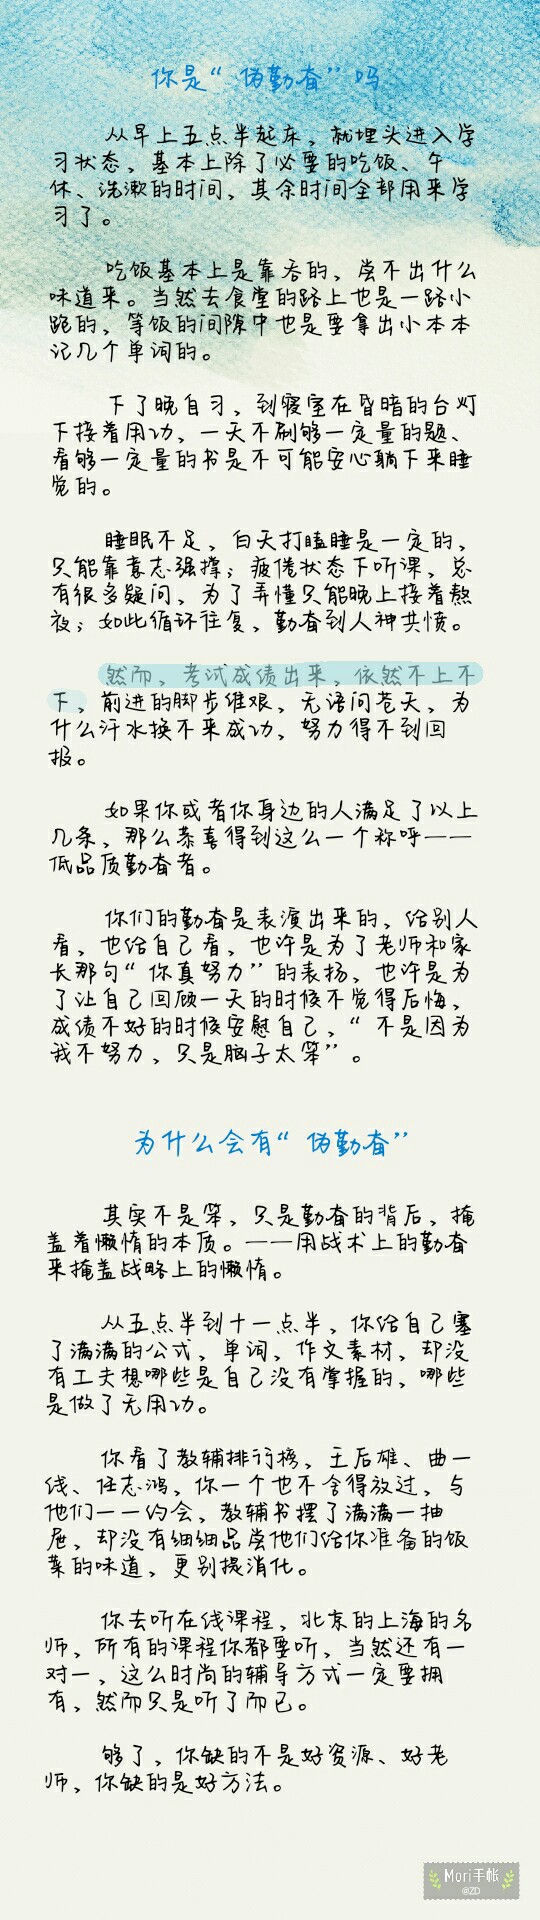 你是“伪勤奋”吗
从早上五点半起床，就埋头进入学
习状态，基本上除了必要的吃饭、午
休、洗漱的时间，其余时间全部用来学
习了。
吃饭基本上是靠吞的，尝不出什么
味道来。当然去食堂的路上也是一路小
跑的，等饭的间隙中也是要拿出小本本
记几个单词的。
下了晚自习，到寝室在昏暗的台灯
下接着用功，一天不刷够一定量的题、
看够一定量的书是不可能安心躺下来睡
觉的。
睡眠不足，白天打瞌睡是一定的，
只能靠意志强撑；疲倦状态下听课，总
有很多疑问，为了弄懂只能晚上接着熬
夜；如此循环往复，勤奋到人神共愤。
然而，考试成绩出来，依然不上不
下，前进的脚步维艰，无语问苍天，为
什么汗水换不来成功，努力得不到回
报。
如果你或者你身边的人满足了以上
几条，那么恭喜得到这么一个称呼——
低品质勤奋者。
你们的勤奋是表演出来的，给别人
看，也给自己看，也许是为了老师和家
长那句“你真努力”的表扬，也许是为
了让自己回顾一天的时候不觉得后悔，
成绩不好的时候安慰自己，“不是因为
我不努力，只是脑子太笨”。
为什么会有“伪勤奋”
其实不是笨，只是勤奋的背后，掩
盖着懒惰的本质。——用战术上的勤奋
来掩盖战略上的懒惰。
从五点半到十一点半，你给自己塞
了满满的公式，单词，作文素材，却没
有工夫想哪些是自己没有掌握的，哪些
是做了无用功。
你看了教辅排行榜，王后雄、曲一
线、任志鸿，你一个也不舍得放过，与
他们一一约会，教辅书摆了满满一抽
屉，却没有细细品尝他们给你准备的饭
菜的味道，更别提消化。
你去听在线课程，北京的上海的名
师，所有的课程你都要听，当然还有一
对一，这么时尚的辅导方式一定要拥
有，然而只是听了而已。
够了，你缺的不是好资源、好老
师，你缺的是好方法。
Mori手帐
@ZD